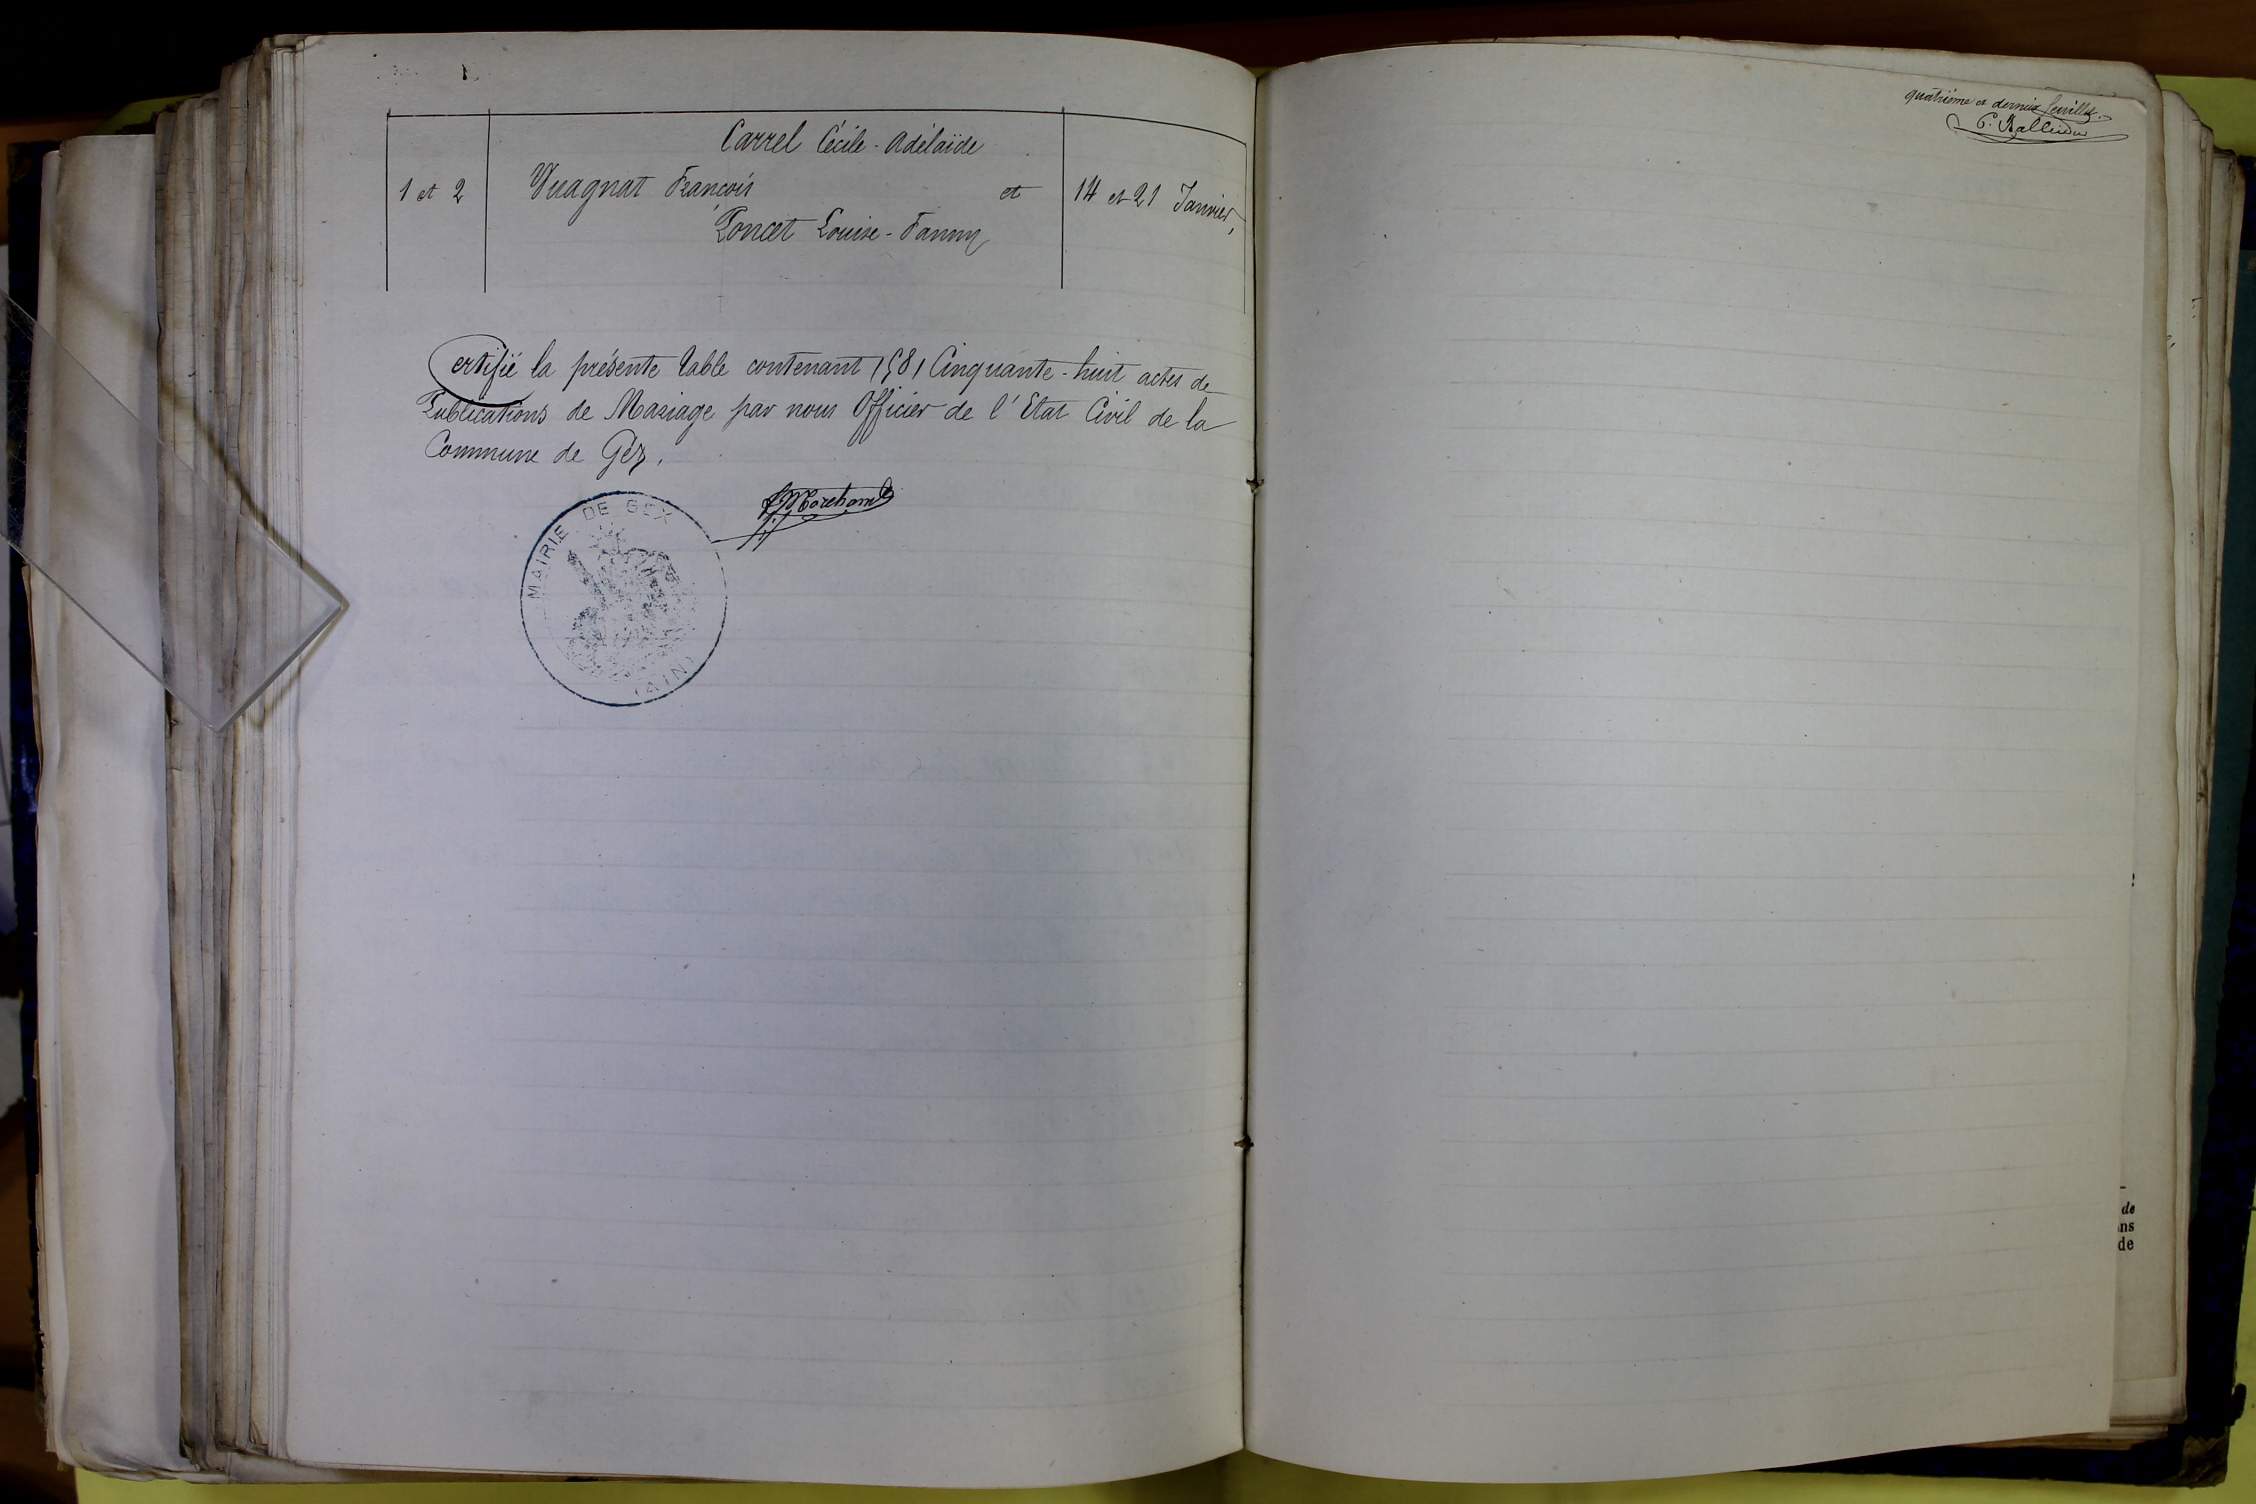 Carrel Cécile-Adélaïde
1 et 2 Vuagnat François et 14 et 21 Janvier,
Poncet Louise-Fanny
Certifié la présente table contenant (58) Cinquante-huit actes de
Publications de Mariage par nous Officier de l'Etat Civil de la
Commune de Gex.
MAIRIE DE GEX
(AIN)
quatrième et dernier feuillet.
de
ns
de